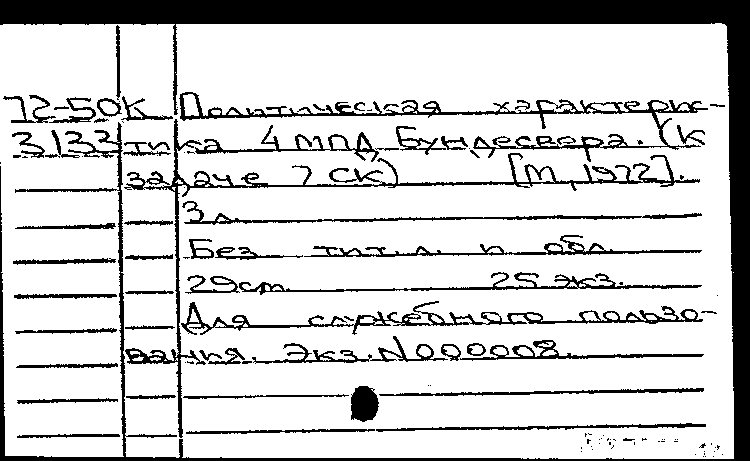 72-50К Политическая характерис-
3133 тика 4 МПД Бундесвера. (К
задаче 7 СК) [М, 1972].
3 л.
Без тит. л. и обл.
29 cm. 25 экз.
Для служебного пользо-
вания. Экз. N 000008.